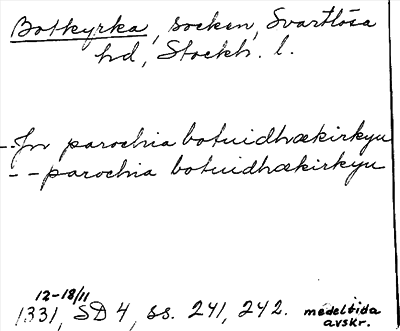 Botkyrka, socken, Svartlösa
hd, Stockh. l.
--In parochia botuidhækirkyu
-- parochia botuidhækirkyu
12-18/11
1331, SD 4, ss. 241, 242. medeltida
avskr.